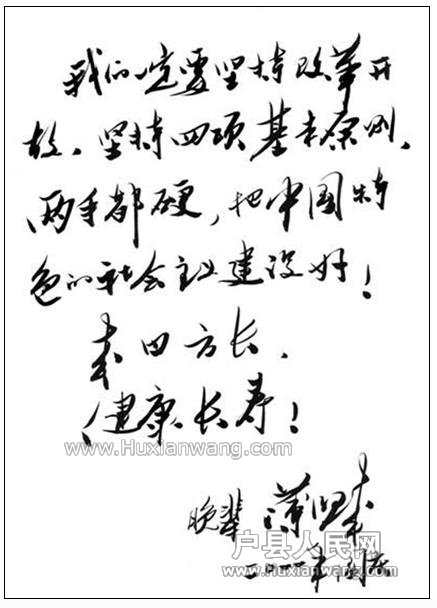 我们一定要坚持改革开
放、坚持四项基本原则、
两手都硬，把中国特
色的社会主义建设好！
来日方长、
健康长寿！
www.Huxianwang.com
晚辈 薄熙来
二〇一一年国庆
户县人民网
www.Huxianwang.com